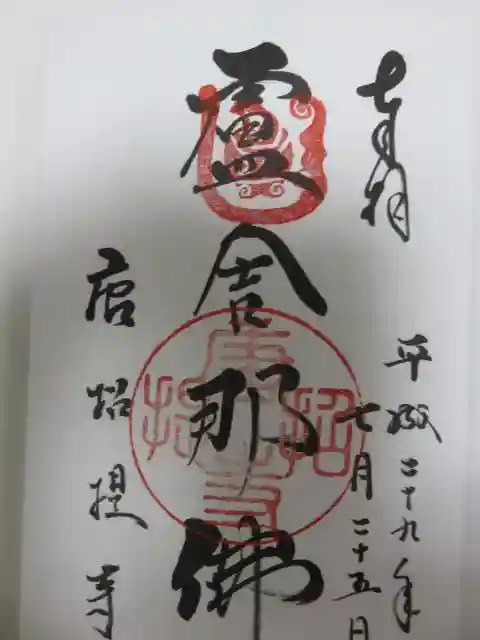 奉拝
平成二十九年
七月二十五日
盧舎那佛
唐招提寺
唐招提寺